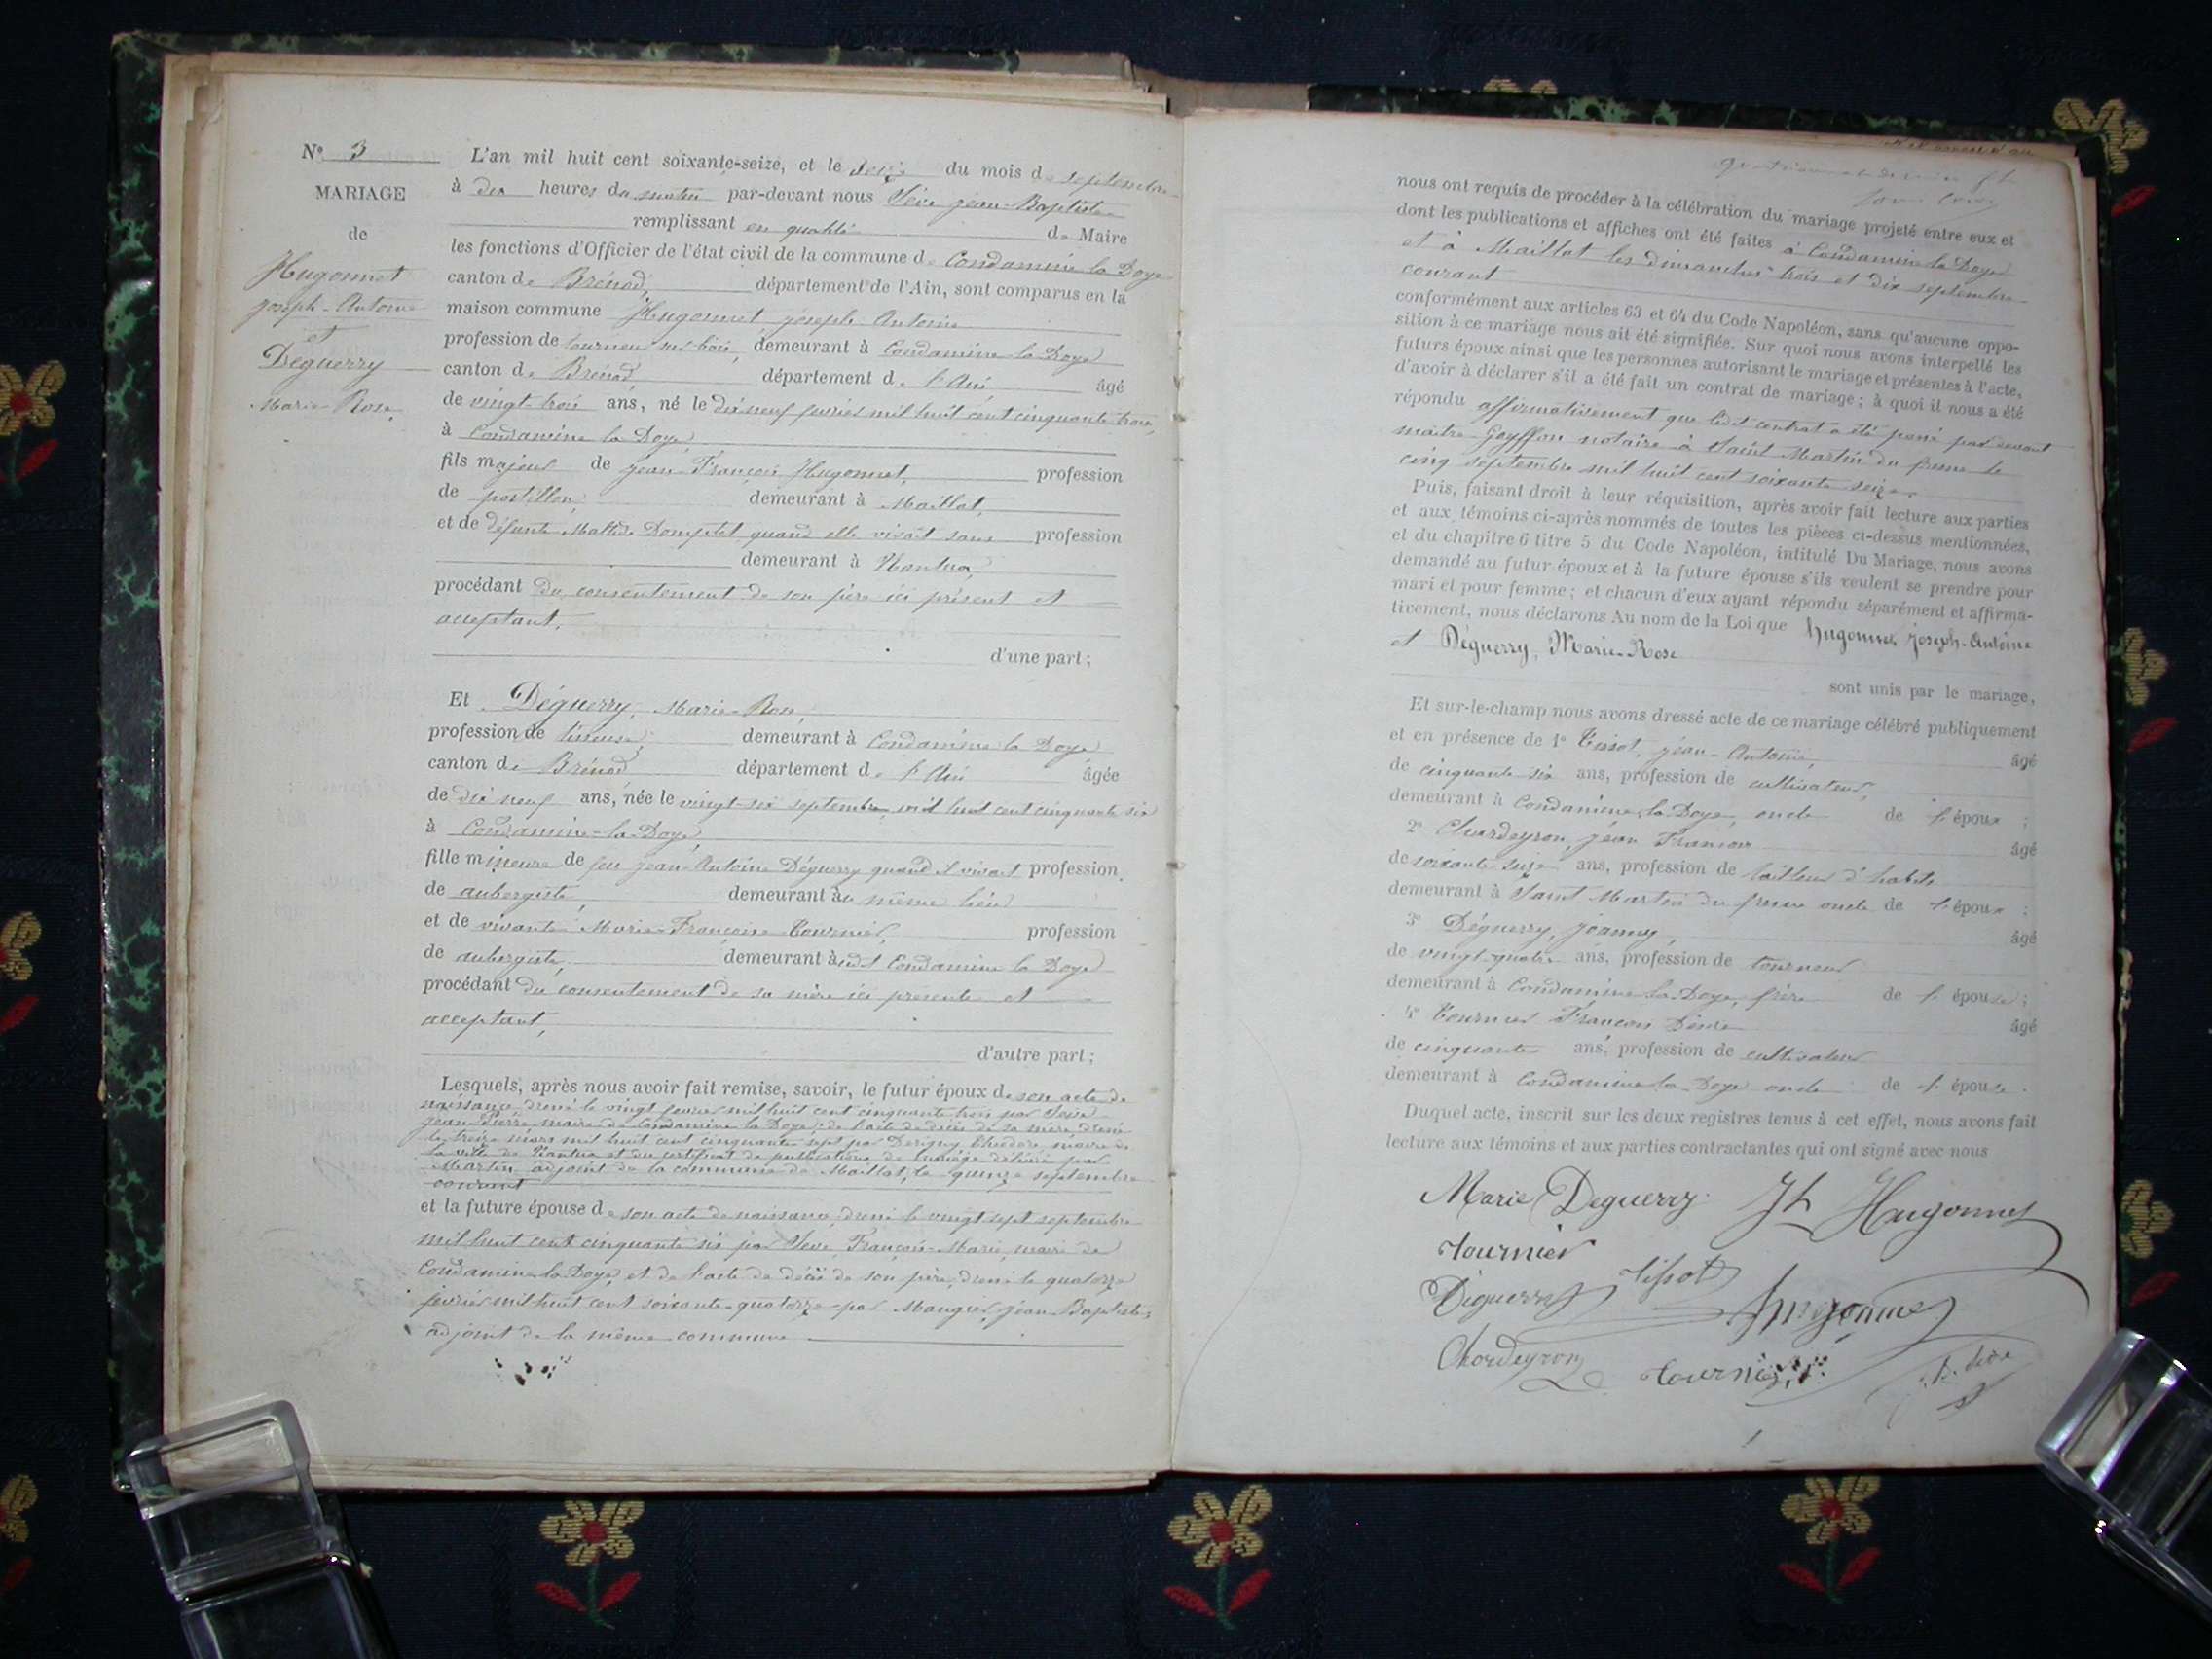 N° 3
MARIAGE
de
Hugonnet
joseph-Antoine
et
Déguerry
Marie-Rose
L'an mil huit cent soixante-seize, et le seize du mois de septembre
à dix heures du matin par-devant nous Sève jean-Baptiste
remplissant en qualité de Maire
les fonctions d'Officier de l'état civil de la commune de Condamine la Doye
canton de Brénod, département de l'Ain, sont comparus en la
maison commune Hugonnet joseph-Antoine
profession de tourneur sur bois, demeurant à Condamine la Doye
canton de Brénod département de l'Ain âgé
de vingt-trois ans, né le dix neuf fevrier mil huit cent cinquante trois,
à Condamine la Doye,
fils majeur de jean-François Hugonnet, profession
de postillon, demeurant à Maillat,
et de défunte quand elle vivait sans profession
demeurant à Nantua,
procédant du consentement de son père ici présent et
acceptant,
d'une part ;
Et Déguerry, Marie-Rose,
profession de tisseuse, demeurant à Condamine la Doye
canton de Brénod département de l'Ain âgée
de dix neuf ans, née le vingt-six septembre mil huit cent cinquante six
à Condamine-la-Doye,
fille mineure de feu jean-Antoine Déguerry quand il vivait profession
de aubergiste, demeurant au même lieu
et de vivante Marie-Françoise Tournier, profession
de aubergiste, demeurant à Condamine la Doye
procédant du consentement de sa mère ici présente et
acceptant,
d'autre part ;
Lesquels, après nous avoir fait remise, savoir, le futur époux de son acte de
naissance dressé le vingt fevrier mil huit cent cinquante trois par Sève
jean-Pierre maire de Condamine la Doye ; de l'acte de décès de sa mère, dressé
le treize mars mil huit cent cinquante sept par Théodore, maire de
la ville de Nantua et du certificat de publications de mariage délivré par
Martin adjoint de la commune de Maillat, le quinze septembre
courant
et la future épouse de son acte de naissance dressé le vingt sept septembre
mil huit cent cinquante six par Sève, François-Marie, maire de
Condamine la Doye, et de l'acte de décès de son père, dressé le quatorze
fevrier mil huit cent soixante-quatorze par Maugier, jean-Baptiste,
adjoint de la même commune
nous ont requis de procéder à la célébration du mariage projeté entre eux et
dont les publications et affiches ont été faites à Condamine la Doye
et à Maillat les dimanches trois et dix septembre
courant
conformément aux articles 63 et 64 du Code Napoléon, sans qu'aucune oppo-
sition à ce mariage nous ait été signifiée. Sur quoi nous avons interpellé les
futurs époux ainsi que les personnes autorisant le mariage et présentes à l'acte,
d'avoir à déclarer s'il a été fait un contrat de mariage ; à quoi il nous a été
répondu affirmativement que ledit contrat a été passé par devant
maitre Goyffon notaire à Saint Martin du fresne le
cinq septembre mil huit cent soixante seize.
Puis, faisant droit à leur réquisition, après avoir fait lecture aux parties
et aux témoins ci-après nommés de toutes les pièces ci-dessus mentionnées,
et du chapitre 6 titre 5 du Code Napoléon, intitulé Du Mariage, nous avons
demandé au futur époux et à la future épouse s'ils veulent se prendre pour
mari et pour femme ; et chacun d'eux ayant répondu séparément et affirma-
tivement, nous déclarons Au nom de la Loi que Hugonnet joseph-Antoine
et Déguerry, Marie-Rose
sont unis par le mariage,
Et sur-le-champ nous avons dressé acte de ce mariage célébré publiquement
et en présence de 1° Tissot, jean-Antoine, âgé
de cinquante six ans, profession de cultivateur,
demeurant à Condamine la Doye, oncle de l'époux ;
2° Chardeyron, jean François âgé
de soixante seize ans, profession de tailleur d'habits
demeurant à Saint Martin du fresne oncle de l'époux ;
3° Déguerry, joanny, âgé
de vingt-quatre ans, profession de tourneur
demeurant à Condamine la Doye, frère de l'épouse ;
4° Tournier François Désiré âgé
de cinquante ans, profession de cultivateur
demeurant à Condamine la Doye oncle de l'épouse.
Duquel acte, inscrit sur les deux registres tenus à cet effet, nous avons fait
lecture aux témoins et aux parties contractantes qui ont signé avec nous
Marie Deguerry Jh Hugonnet
Tournier
Déguerry Tissot Hugonnet
Chardeyron Tournier J.B. Sève